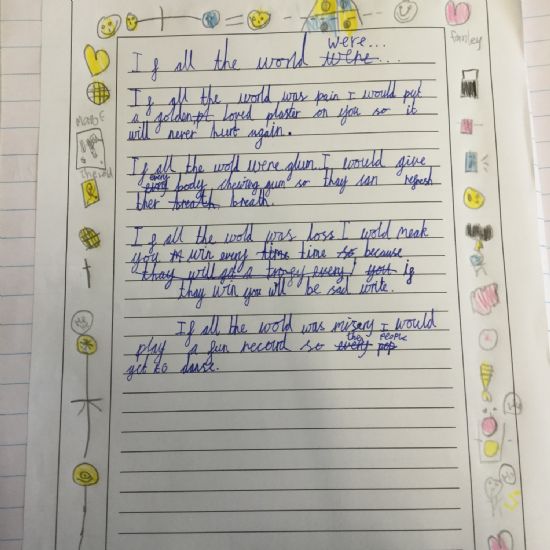 were...
If all the world were...
If all the world was pain I would put
a golden pt loved plaster on you so it
will never hurt again.
If all the wold were glum I would give
every
every body chewing gum so thay can refresh
ther breath breath.
If all the wold was loss I wold meak
you win every time time so because
thay will get a trogy every you if
they win you will be sad write.
If all the wold was misary I would
the People
play a fun record so every pop
get to danse.
family